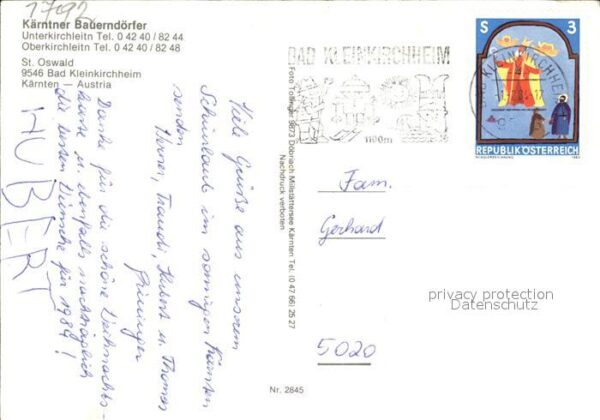 1792
Kärntner Bauerndörfer
Unterkirchleitn Tel. 0 42 40 / 82 44
Oberkirchleitn Tel. 0 42 40 / 82 48
St. Oswald
9546 Bad Kleinkirchheim
Kärnten – Austria
Viele Grüße aus unserem
Schiurlaub im sonnigen Kärnten
senden
Werner, Traudi, Hubert u. Thomas
Danke für die schöne Weihnachts-
karte u. ebenfalls nachträglich
die besten Wünsche für 1984!
HUBERT
Foto Tollinger 9873 Döbriach Millstättersee Kärnten Tel. (0 47 66) 25 27
Nachdruck verboten
Nr. 2845
BAD KLEINKIRCHHEIM
1100m
BAD KLEINKIRCHHEIM
S 3
REPUBLIK ÖSTERREICH
Fam.
Gerhard
5020
privacy protection
Datenschutz